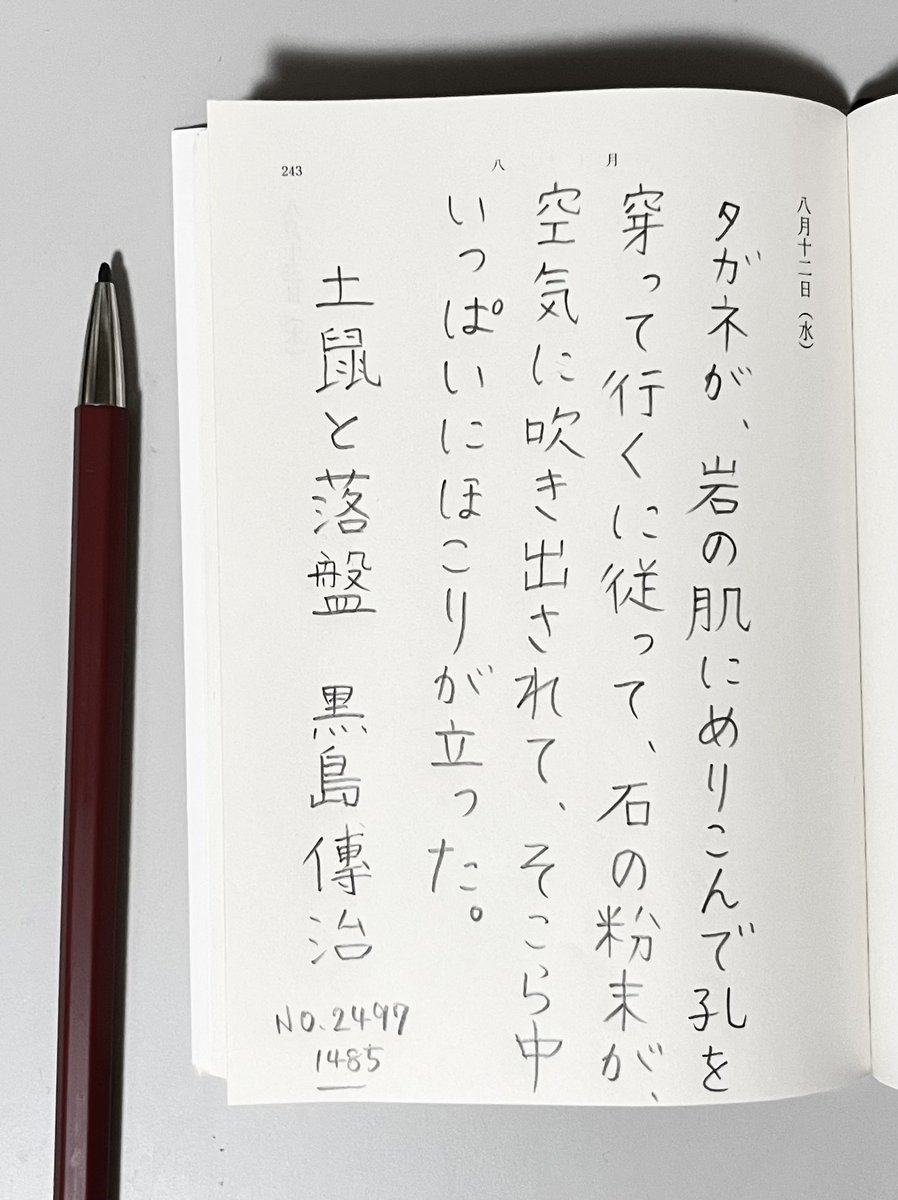 243
八月
八月十二日（水）
タガネが、岩の肌にめりこんで孔を
穿って行くに従って、石の粉末が、
空気に吹き出されて、そこら中
いっぱいにほこりが立った。
土鼠と落盤　黒島傳治
NO.2497
1485